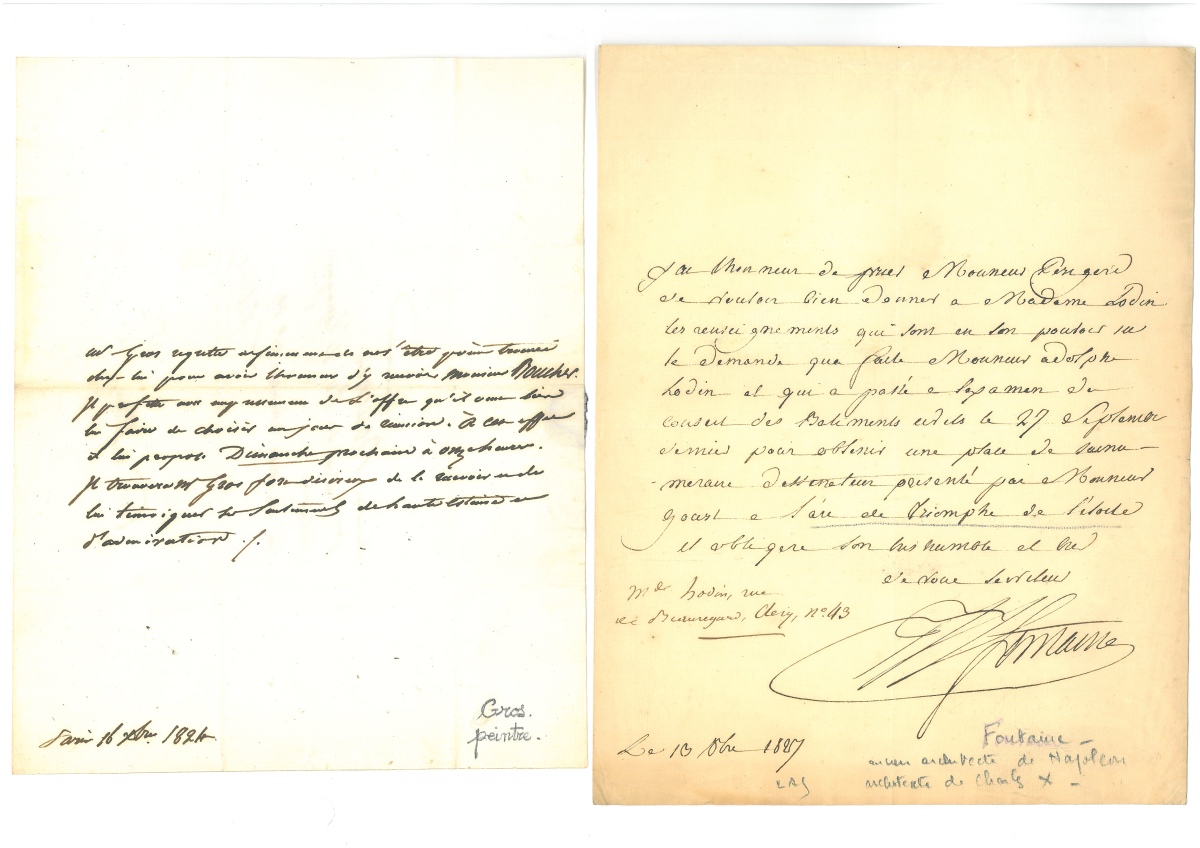 Mr Gros regrette infiniment de ne s'être point trouvé
chez lui pour avoir l'honneur d'y recevoir monsieur Boucher.
Il profite avec empressement de l'offre qu'il veut bien
lui faire de choisir un jour de réunion. à cet effet
il lui propose Dimanche prochain à onze heures.
Il trouvera Mr Gros fort désireux de le recevoir et de
lui témoigner ses sentimens de haute estime et
d'admiration ./.
Paris 16 xbre 1824
Gros.
peintre.
J'ai l'honneur de prier Monsieur
de vouloir bien donner a Madame Lodin
les renseignements qui sont en son pouvoir sur
la demande que faite Monsieur adolphe
Lodin et qui a passé a l'examen du
conseil des Batiments civils le 27 Septembre
dernier pour obtenir une place de surnu-
-meraire dessinateur présenté par Monsieur
goust a l'arc de Triomphe de l'étoile
et obligera son tres humble et tres
devoué serviteur
Fontaine
Mde Lodin, rue
de Beauregard, Clery, no. 43
Le 13 8bre 1827
Fontaine -
ancien architecte de Napoléon
LAS architecte de Charles X -